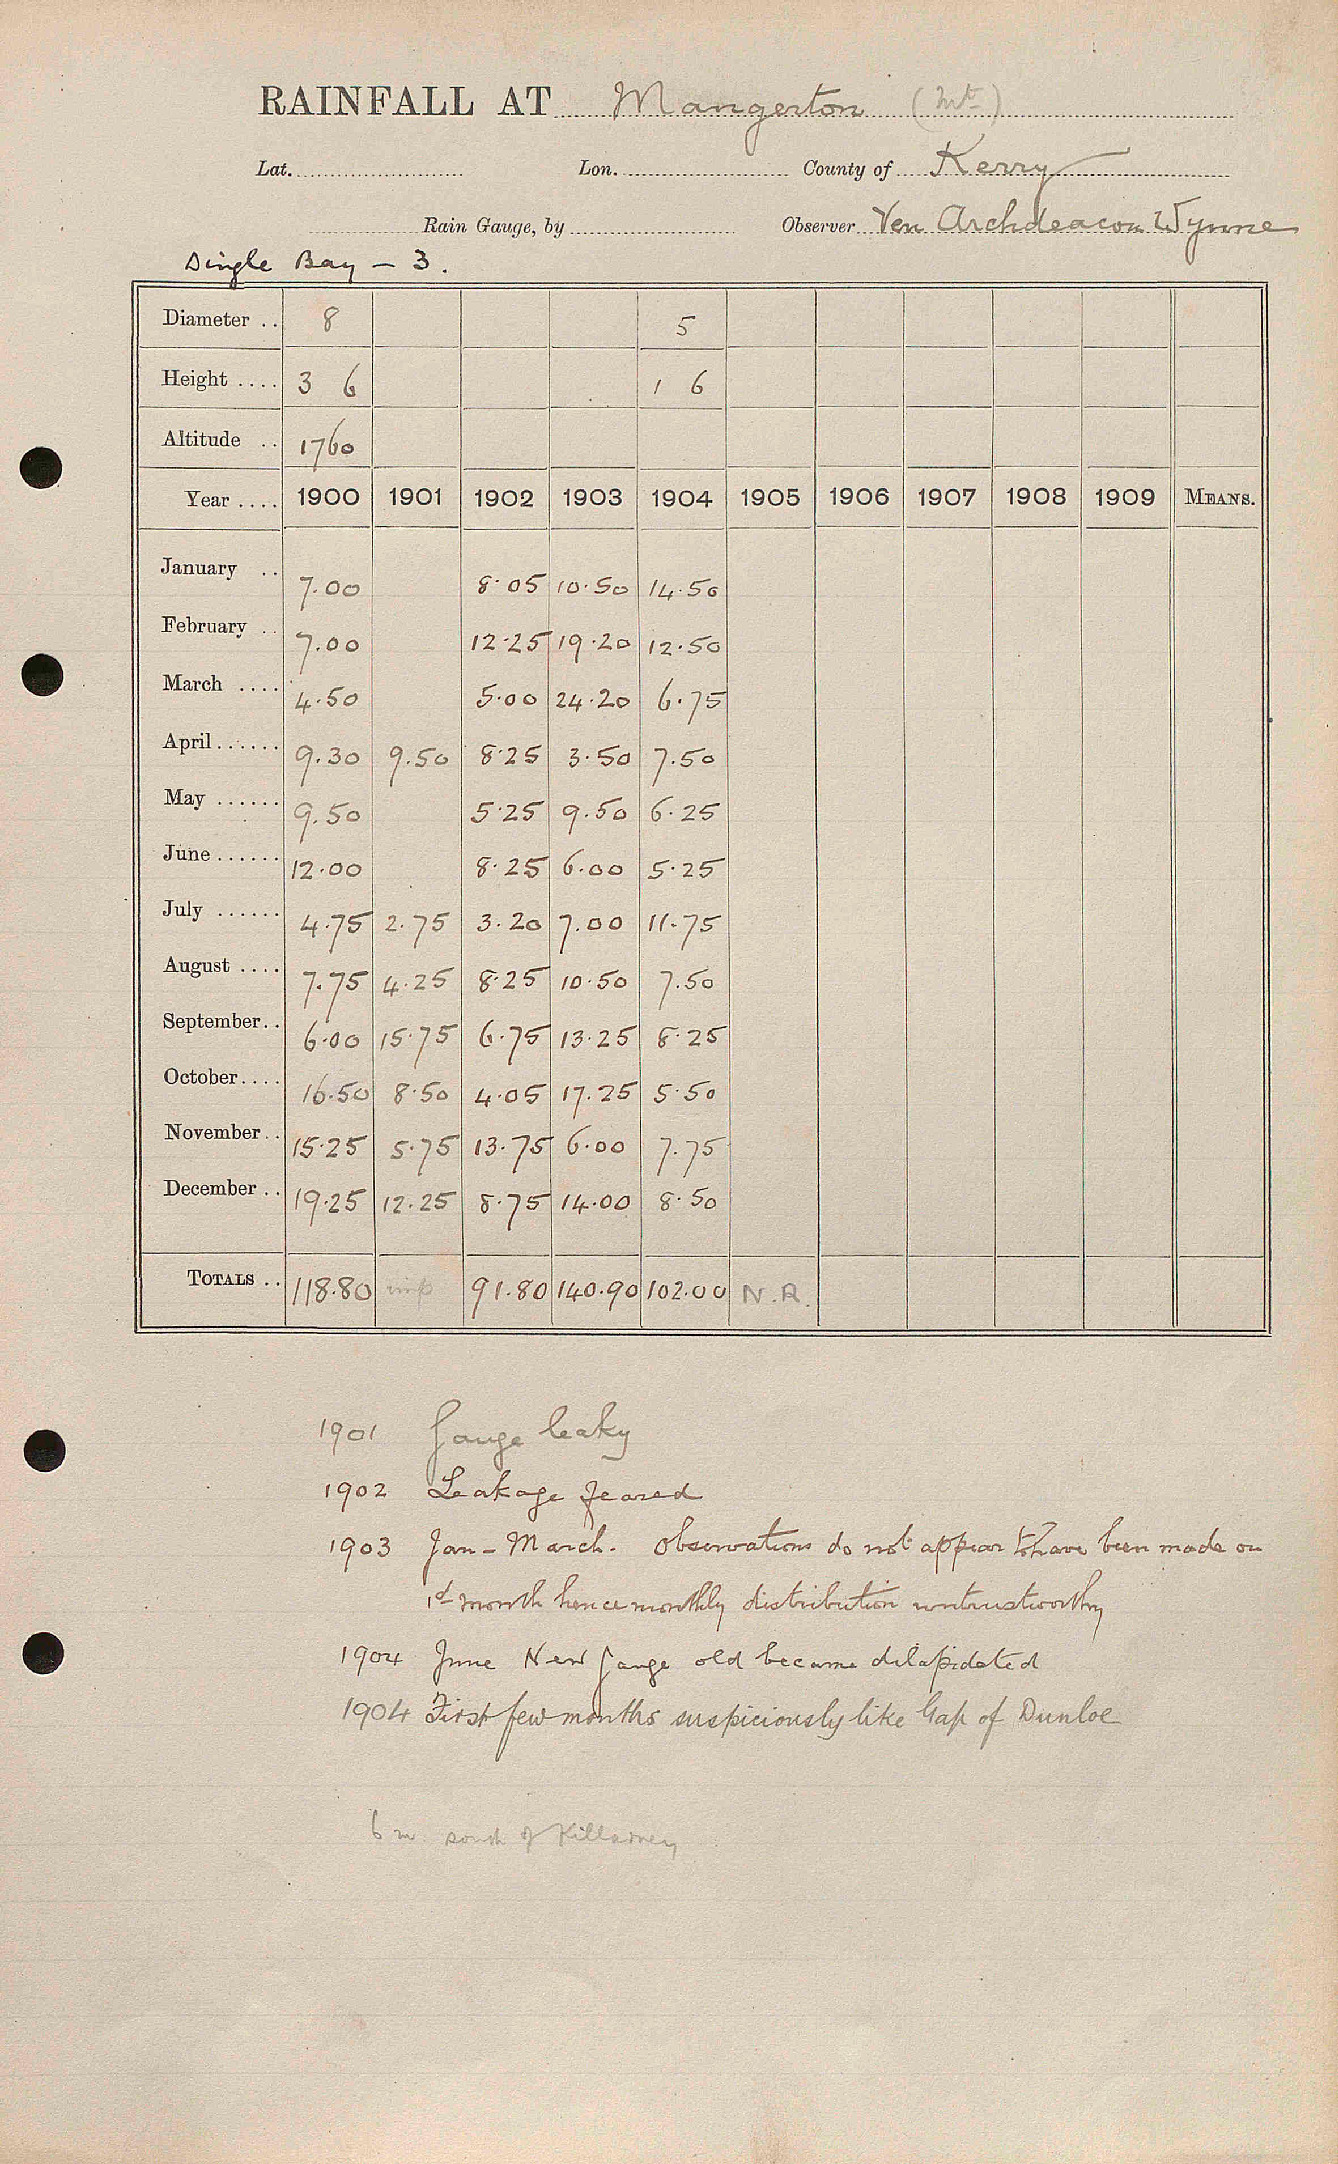 RAINFALL AT Mangerton (Mt)
Lat. Lon. County of Kerry
Rain Gauge, by Observer Ven Archdeacon Wynne
Dingle Bay – 3.
Diameter .. 8 5
Height .... 3 6 1 6
Altitude .. 1760
Year .... 1900 1901 1902 1903 1904 1905 1906 1907 1908 1909 MEANS.
January .. 7.00 8.05 10.50 14.50
February .. 7.00 12.25 19.20 12.50
March .... 4.50 5.00 24.20 6.75
April ...... 9.30 9.50 8.25 3.50 7.50
May ...... 9.50 5.25 9.50 6.25
June ...... 12.00 8.25 6.00 5.25
July ...... 4.75 2.75 3.20 7.00 11.75
August .... 7.75 4.25 8.25 10.50 7.50
September.. 6.00 15.75 6.75 13.25 8.25
October.... 16.50 8.50 4.05 17.25 5.50
November .. 15.25 5.75 13.75 6.00 7.75
December .. 19.25 12.25 8.75 14.00 8.50
TOTALS .. 118.80 imp 91.80 140.90 102.00 N.R.
1901 Gauge leaky
1902 Leakage feared
1903 Jan – March. Observations do not appear to have been made on
1st month hence monthly distribution untrustworthy
1904 June New gauge old became dilapidated
1904 First few months suspiciously like Gap of Dunloe
6 m south of Killarney